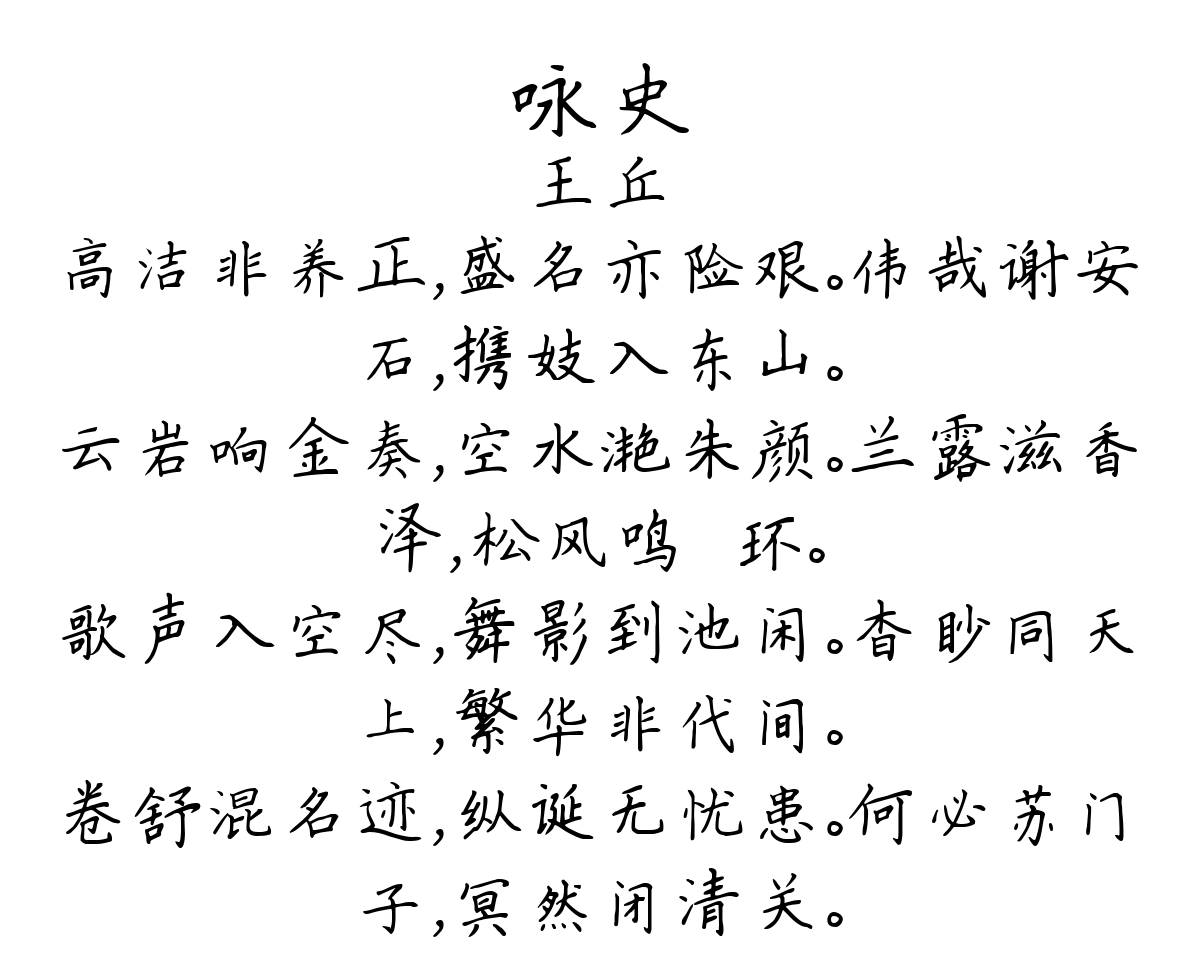 咏史
王丘
高洁非养正,盛名亦险艰。伟哉谢安
石,携妓入东山。
云岩响金奏,空水滟朱颜。兰露滋香
泽,松风鸣 环。
歌声入空尽,舞影到池闲。杳眇同天
上,繁华非代间。
卷舒混名迹,纵诞无忧患。何必苏门
子,冥然闭清关。